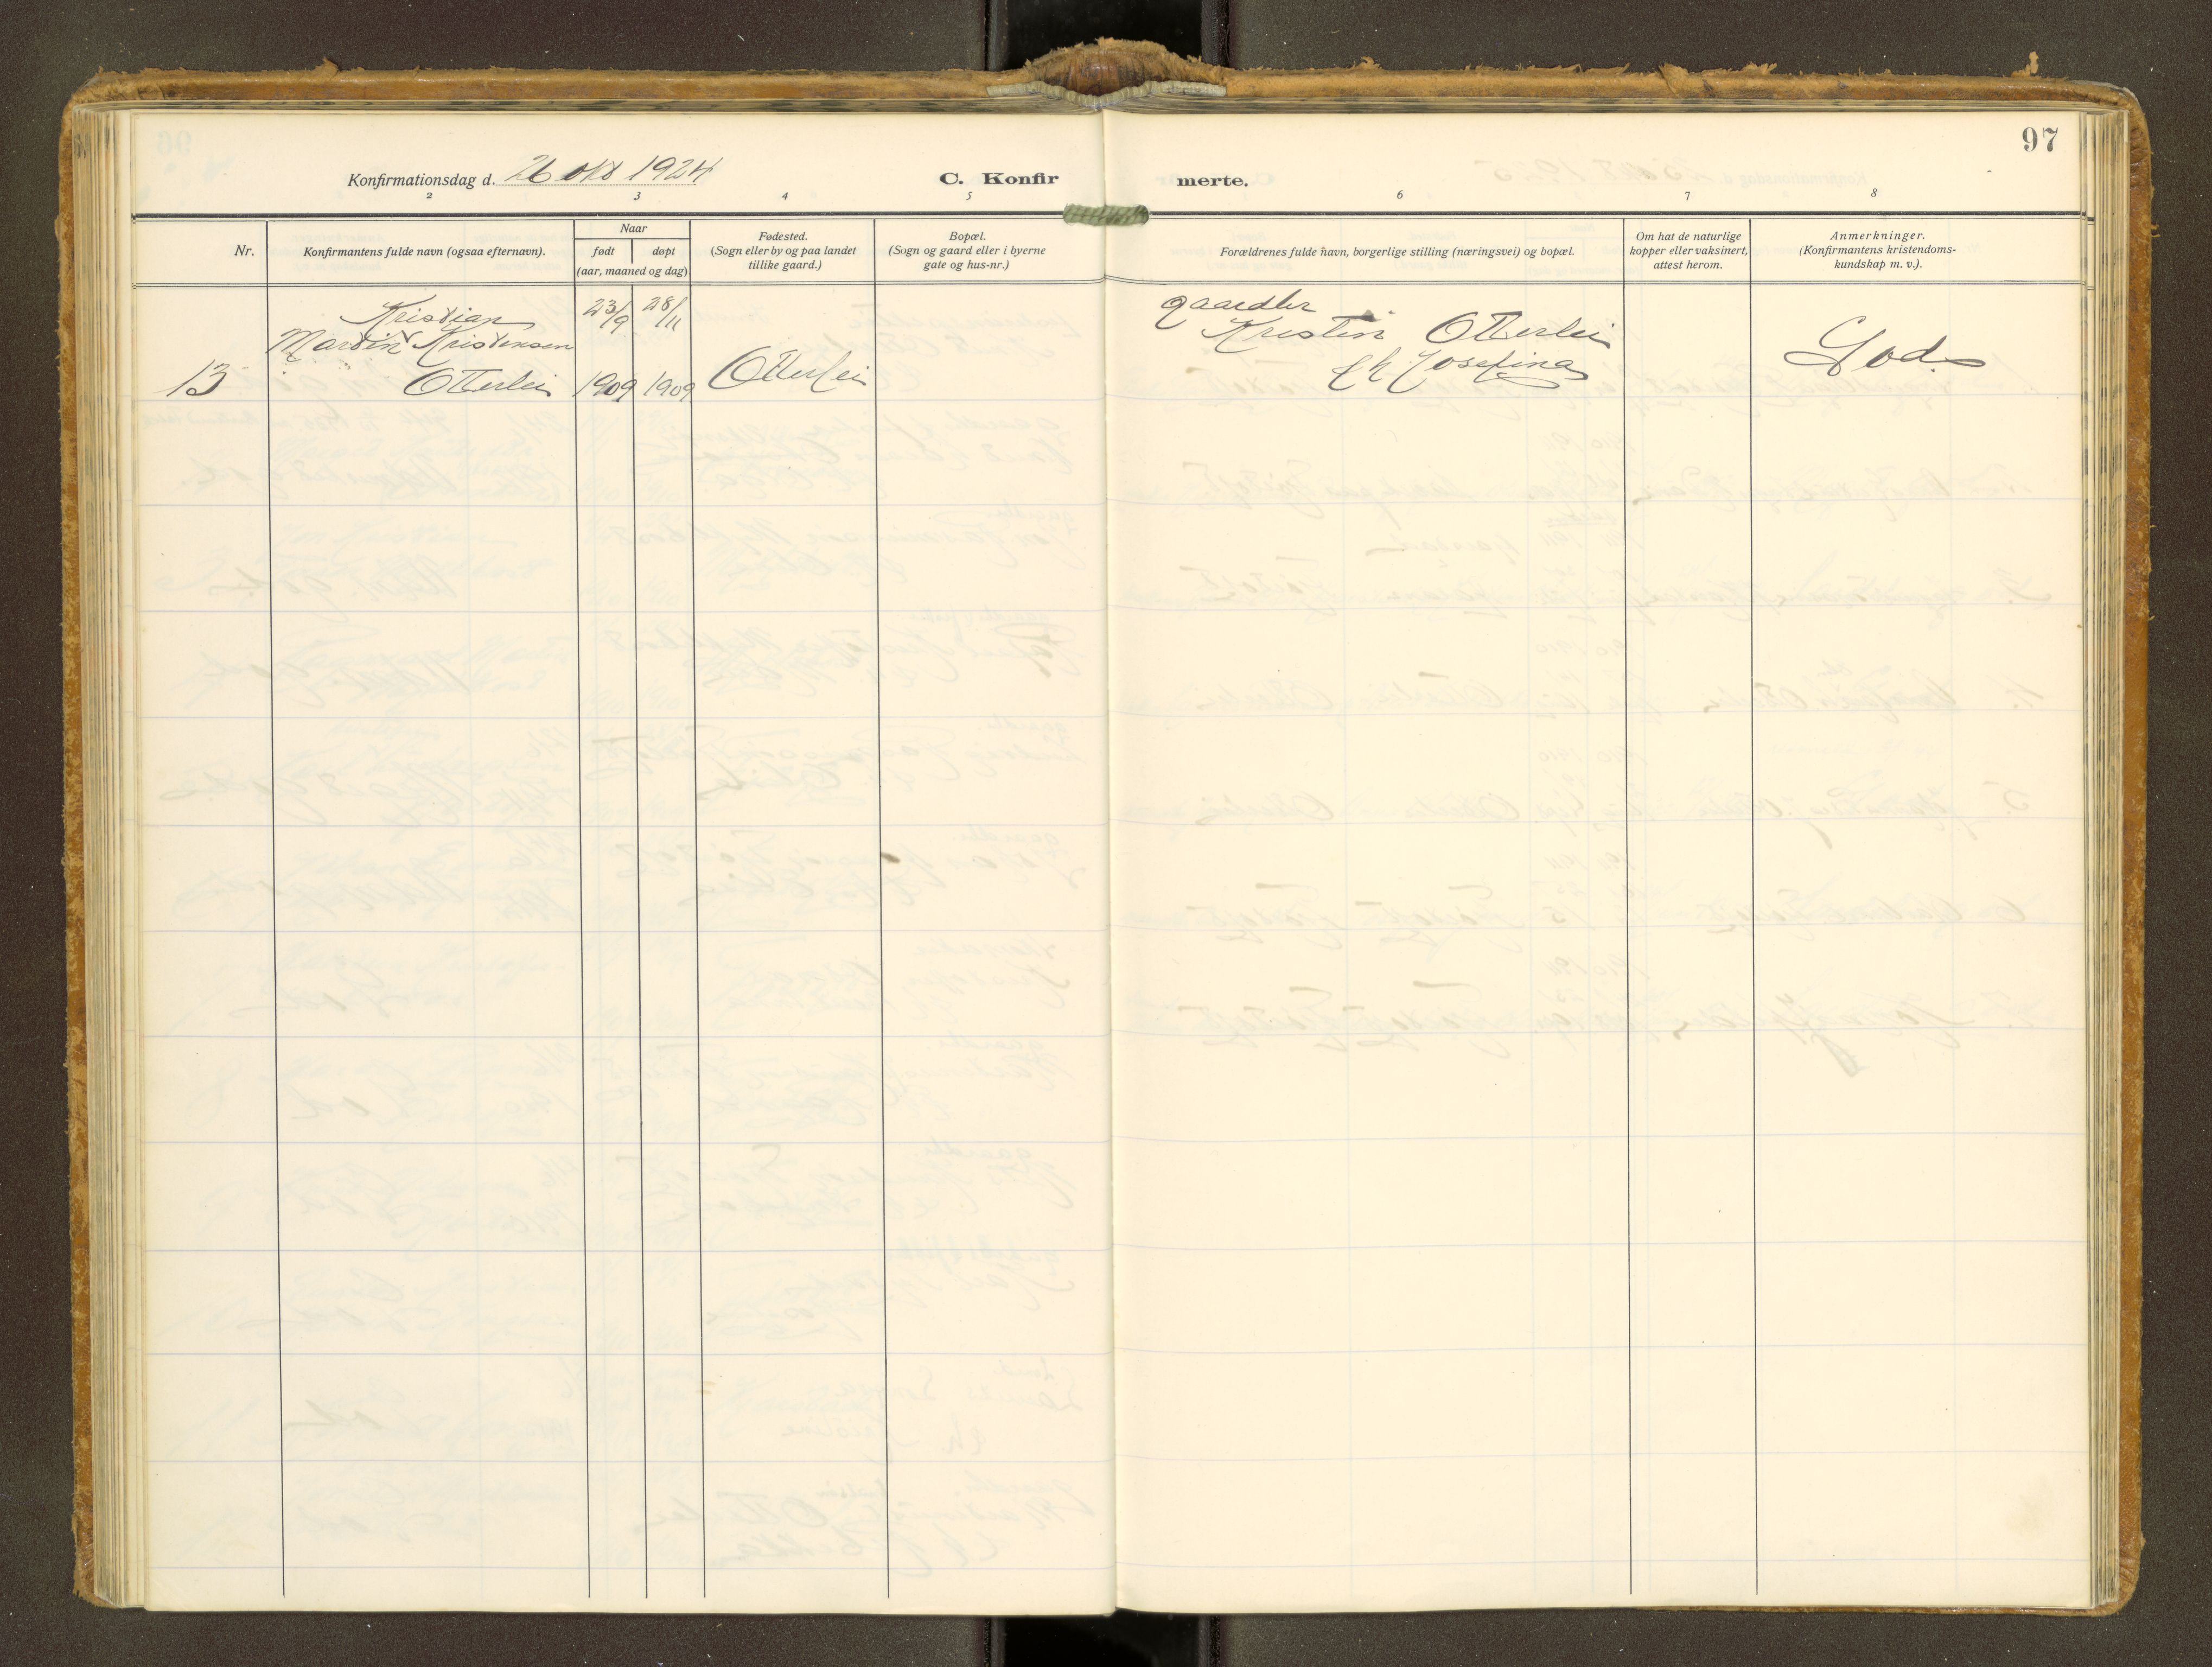 97
Konfirmationsdag d. 26 okt 1924
C. Konfirmerte.
2 3 4 5 6 7 8
Nr.
Konfirmantens fulde navn (ogsaa efternavn).
Naar
født døpt
(aar, maaned og dag)
Fødested.
(Sogn eller by og paa landet
tillike gaard.)
Bopæl.
(Sogn og gaard eller i byerne
gate og hus-nr.)
Forældrenes fulde navn, borgerlige stilling (næringsvei) og bopæl.
Om hat de naturlige
kopper eller vaksinert,
attest herom.
Anmerkninger.
(Konfirmantens kristendoms-
kundskap m. v.).
Kristian 23/9 28/11 gaardbr
Martin Kristensen Kristen Otterlei
13 Otterlei 1909 1909 Otterlei Josefina God.